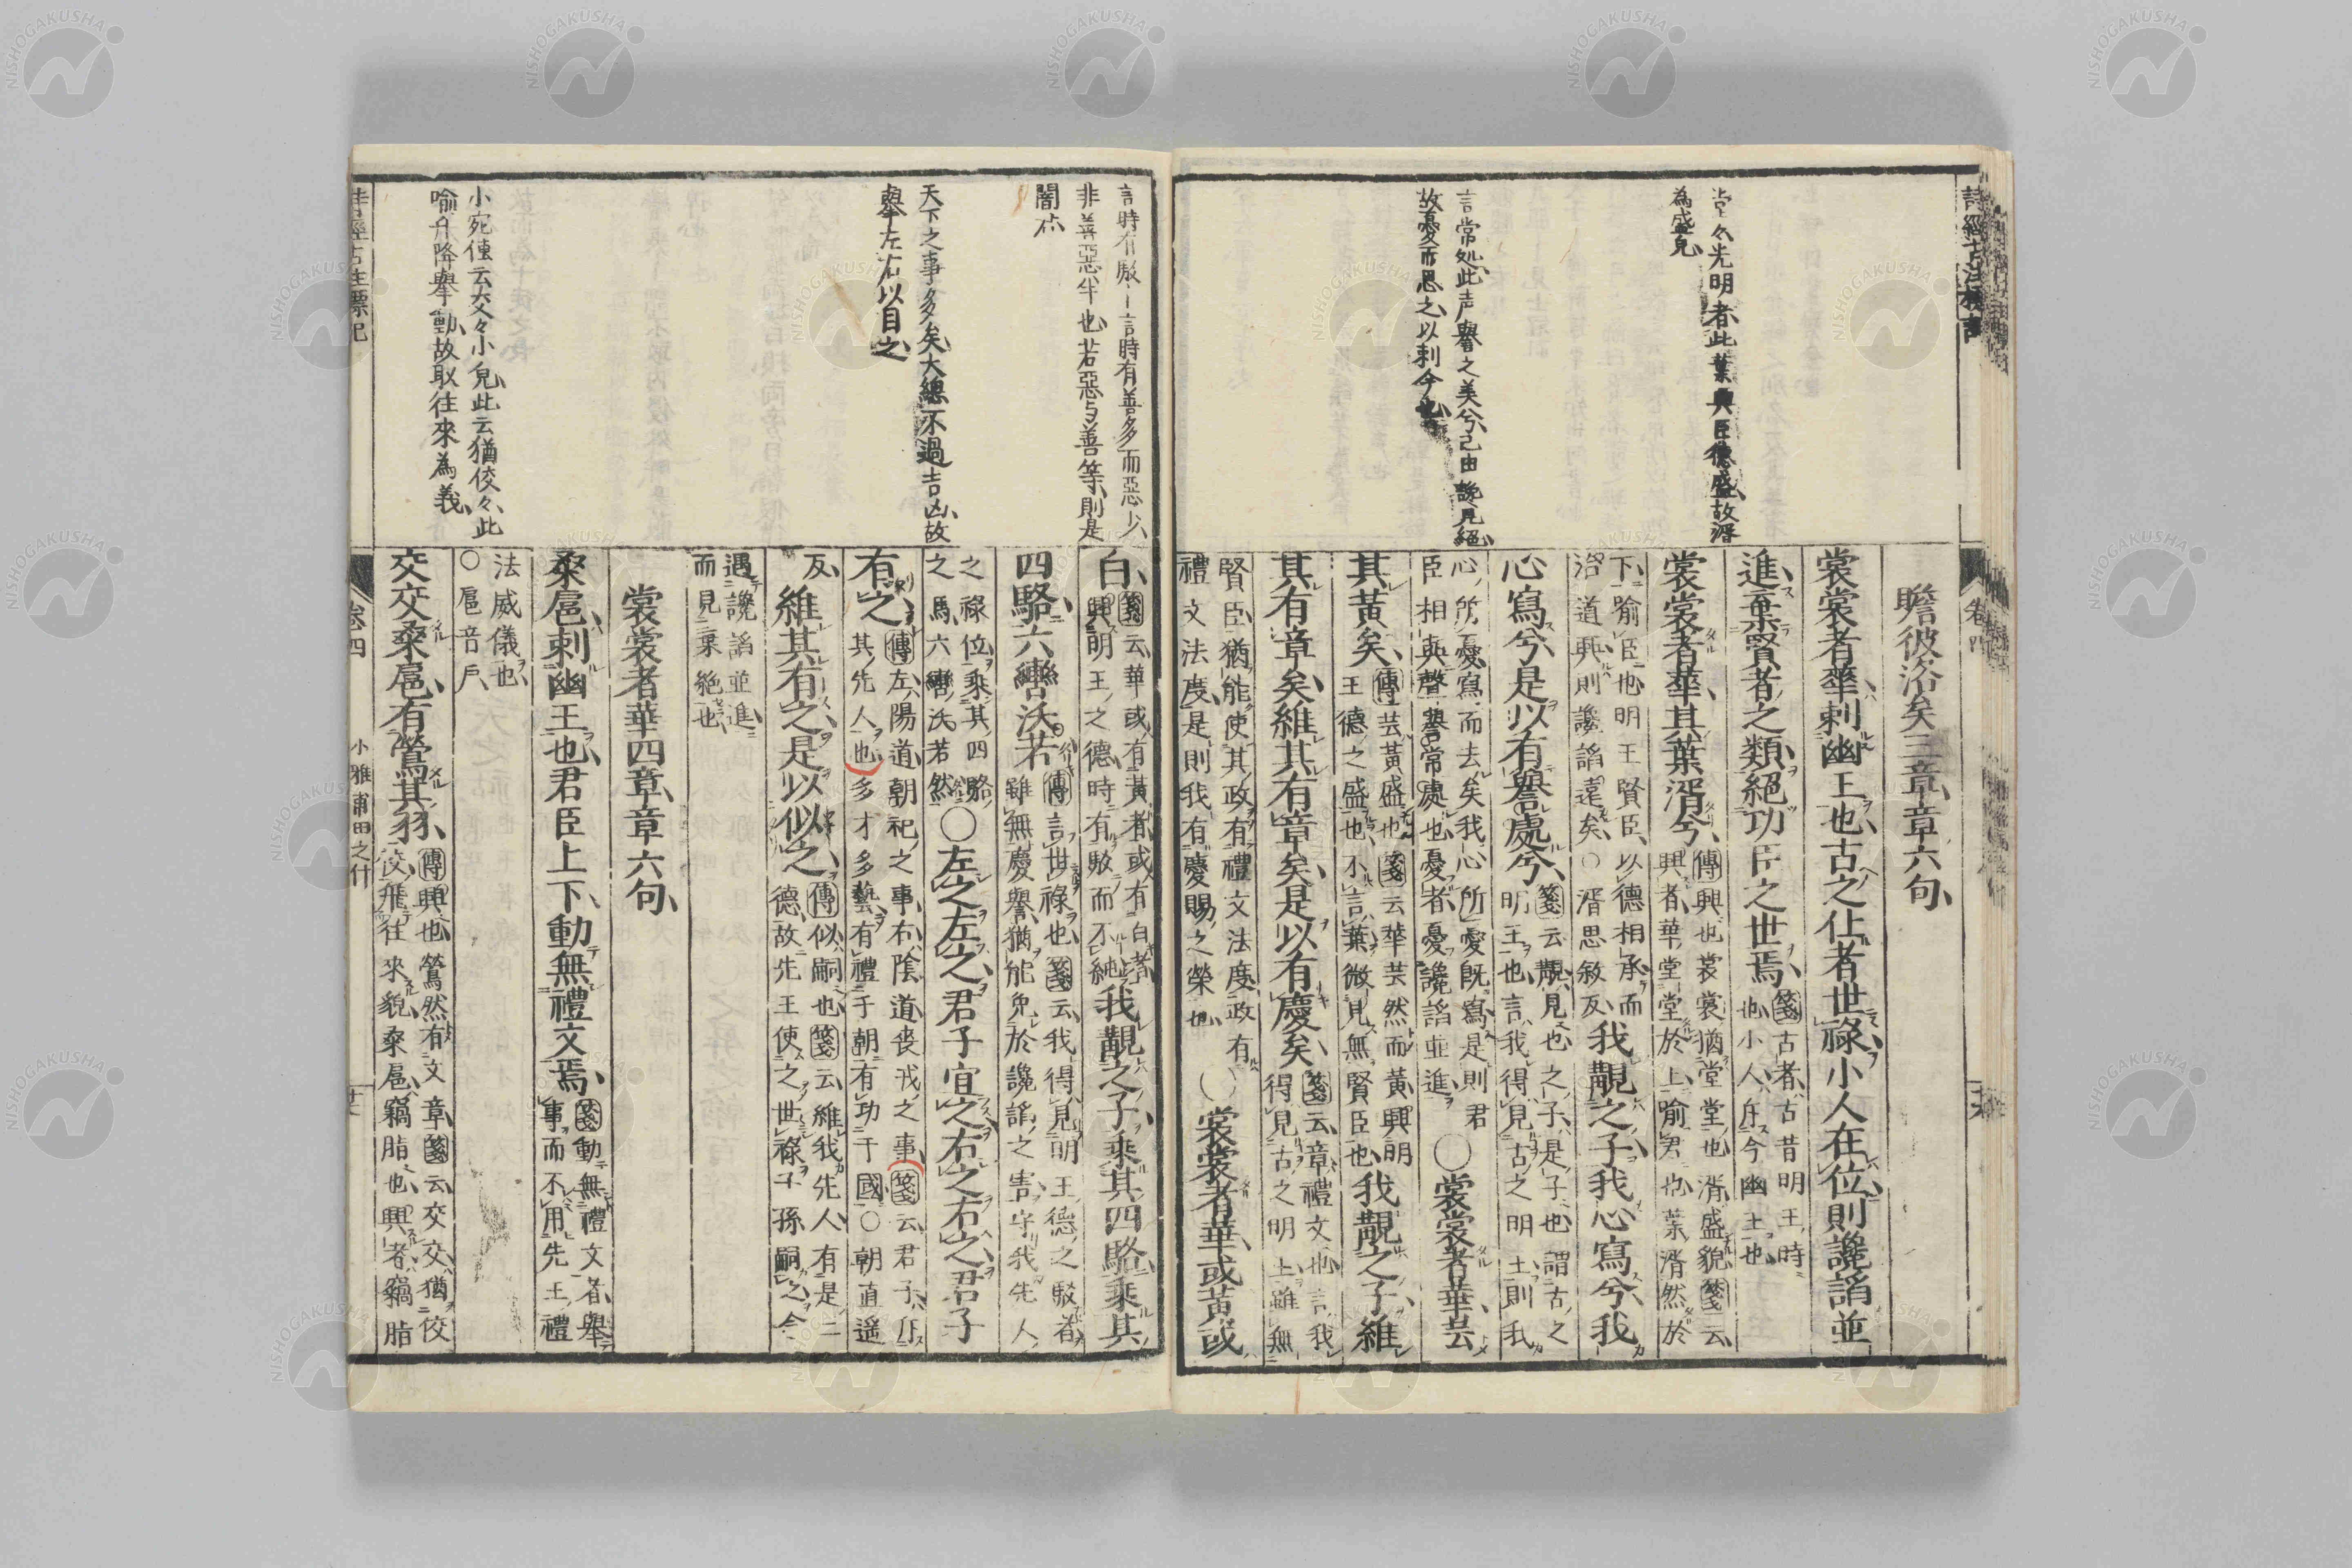 詩經古注標記
堂々光明者此葉與臣德盛故湑
為盛皃
言常処此声譽之美兮已由讒見絕
故憂而思之以刺今也
卷四
瞻彼洛矣三章章六句
裳裳者華刺幽王也古之仕者世祿小人在位則讒諂並
進棄賢者之類絕功臣之世焉
箋古者古昔明王時
也小人斥今幽王也
裳裳者華其葉湑兮
傳興也裳裳猶堂堂也湑盛貌箋云
興者華堂堂於上喻君也葉湑然於
下喻臣也明王賢臣以德相承而
治道興則讒諂遠矣○湑思敘反
我覯之子我心寫兮我
心寫兮是以有譽處兮
箋云覯見也之子是子也謂古之
明王也言我得見古之明王則我
心所憂寫而去矣我心所憂既寫是則君
臣相與聲譽常處也憂者憂讒諂並進
○裳裳者華芸
其黃矣
傳芸黃盛也箋云華芸然而黃興明
王德之盛也不言葉微見無賢臣也
我覯之子維
其有章矣維其有章矣是以有慶矣
箋云章禮文也言我
得見古之明王雖無
賢臣猶能使其政有禮文法度政有
禮文法度是則我有慶賜之榮也
○裳裳者華或黃或
言時有駁一言時有善多而惡少
非善惡半也若惡与善等則是
闇亦
天下之事多矣大總不過吉凶故
舉左右以目之
小宛傳云交々小皃此云猶佼々此
喻升降舉動故取往來為義
白
箋云華或有黃者或有白者
興明王之德時有駁而不純
我覯之子乘其四駱乘其
四駱六轡沃若
傳言世祿也箋云我得見明王德之駁者
雖無慶譽猶能免於讒諂之害守我先人
之祿位乘其四駱
之馬六轡沃若然
○左之左之君子宜之右之右之君子
有之
傳左陽道朝祀之事右陰道喪戎之事箋云君子斥
其先人也多才多藝有禮于朝有功于國○朝直遙
反
維其有之是以似之
傳似嗣也箋云維我先人有是二
德故先王使之世祿子孫嗣之今
遇讒諂並進
而見棄絕也
裳裳者華四章章六句
桑扈刺幽王也君臣上下動無禮文焉
箋動無禮文者舉
事而不用先王禮
法威儀也
○扈音戶
交交桑扈有鶯其羽
傳興也鶯然有文章箋云交交猶佼
佼飛往來貌桑扈竊脂也興者竊脂
詩經古注標記
卷四
小雅 甫田之什